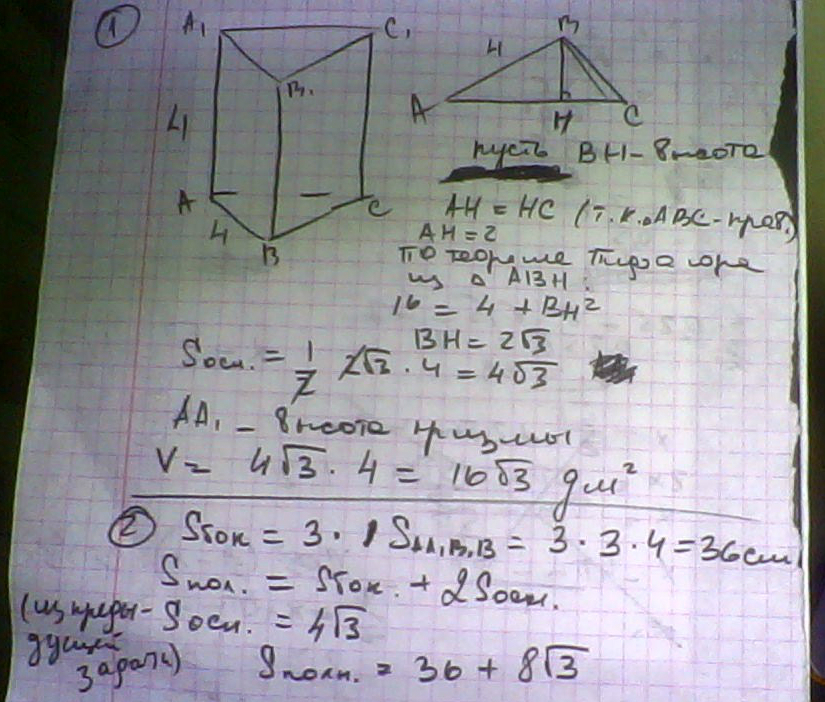 ①
A₁ C₁
B₁
4
A C
4
B
B
4
A H C
пусть BH - высота
AH = HC (т.к. ΔABC - прав.)
AH = 2
по теореме Пифагора
из Δ ABH:
16 = 4 + BH²
BH = 2√3
Sосн. = 1/2 2√3 · 4 = 4√3
AA₁ - высота призмы
V = 4√3 · 4 = 16√3 дм²
② Sбок = 3 · SAA₁B₁B = 3 · 3 · 4 = 36 см
Sпол. = Sбок. + 2Sосн.
(из преды-
дущей
задачи)
Sосн. = 4√3
Sполн. = 36 + 8√3